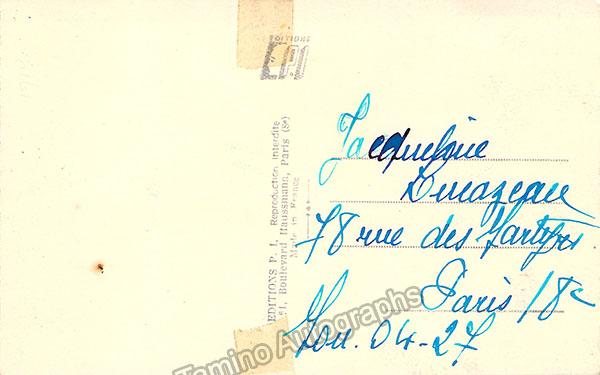 EDITIONS P. I. Reproduction interdite
Boulevard Haussmann, Paris (8e)
Made in France
Jacqueline
78 rue des Martyrs
Paris 18e
04-27
Tamino Autographs